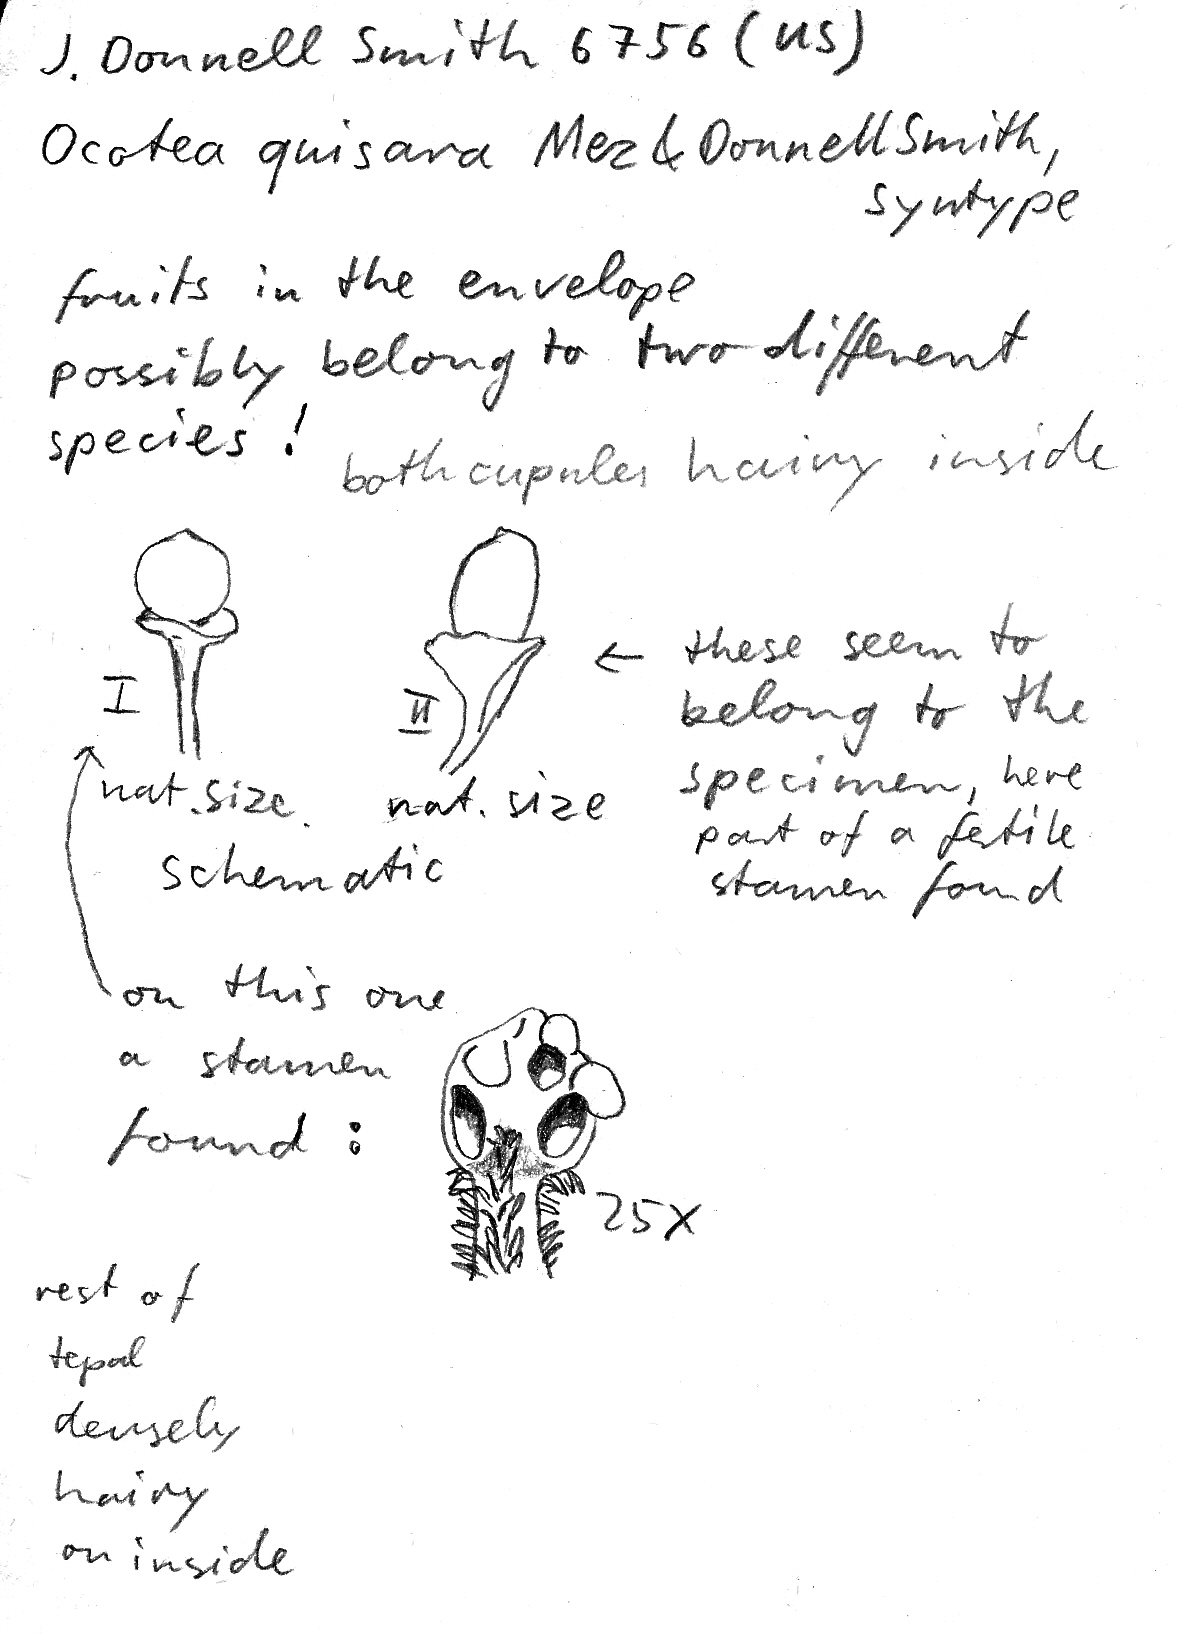 J. Donnell Smith 6756 (US)
Ocotea quisara Mez & Donnell Smith,
syntype
fruits in the envelope
possibly belong to two different
species!
both cupules hairy inside
I
II
nat. size.
nat. size
schematic
← these seem to
belong to the
specimen, here
part of a fertile
stamen found
on this one
a stamen
found:
25x
rest of
tepal
densely
hairy
on inside